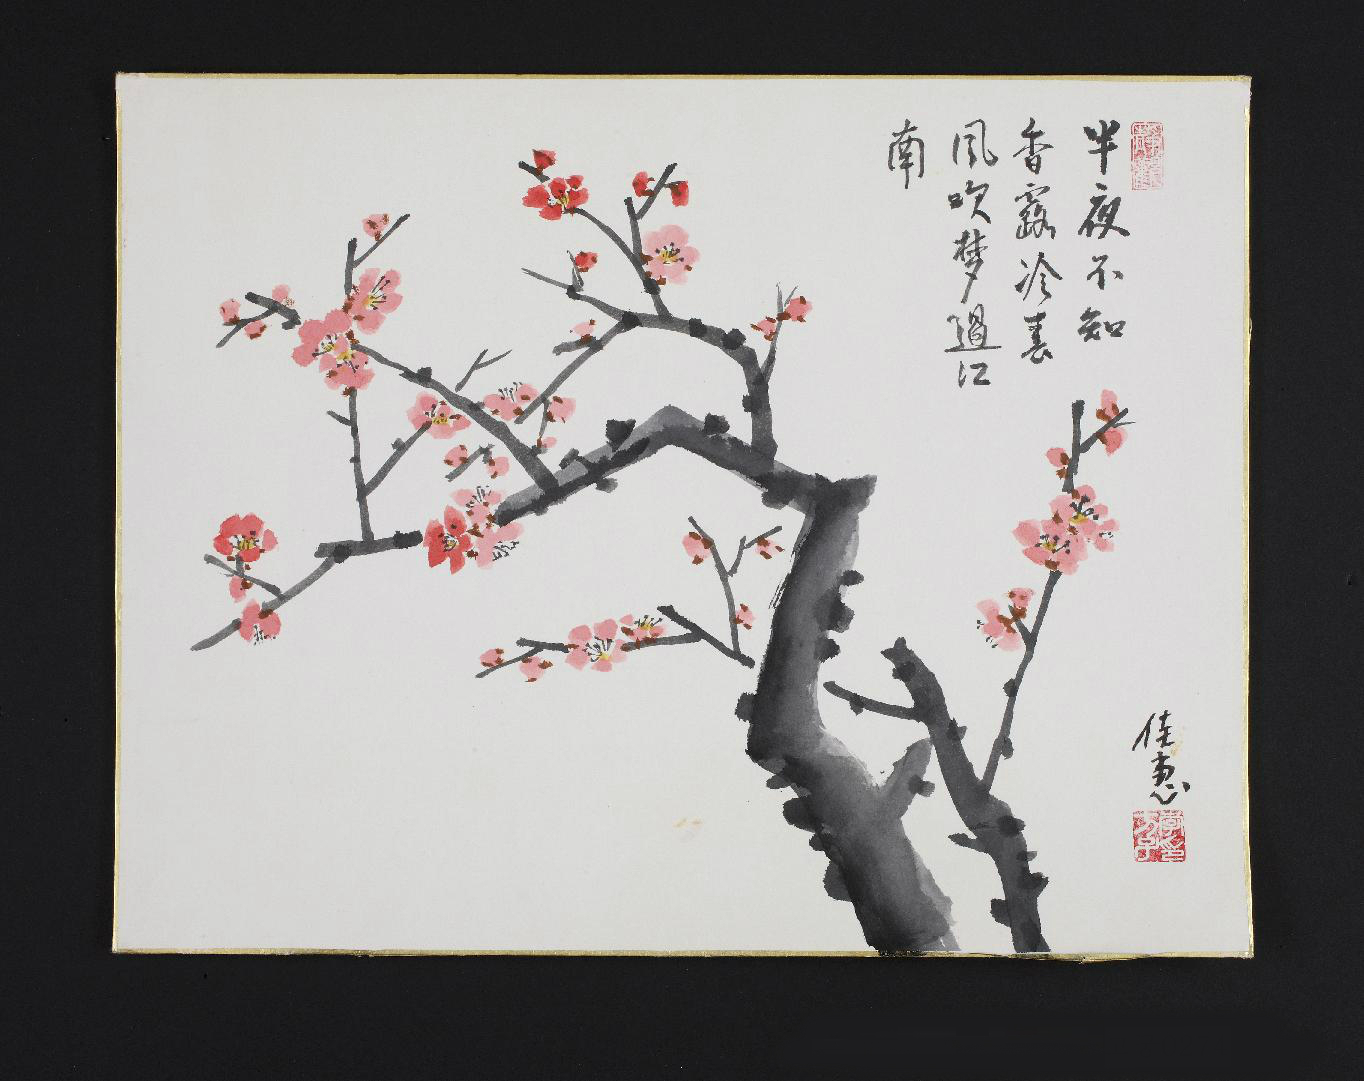 半夜不知
香露冷春
风吹梦過江
南
佳惠